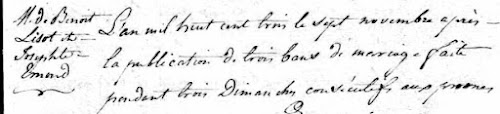 M. de Benoit
Lisot &
Josephte
Emond
L'an mil huit cent trois le sept novembre après
la publication de trois bans de mariage faite
pendant trois Dimanches consécutifs aux prones